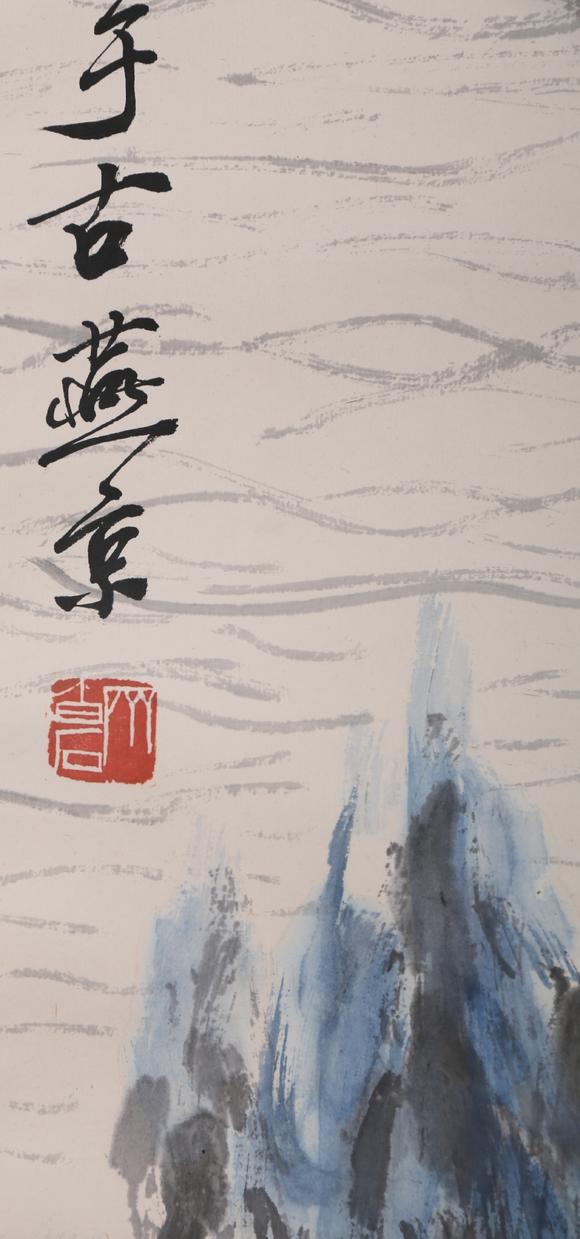 于古燕京